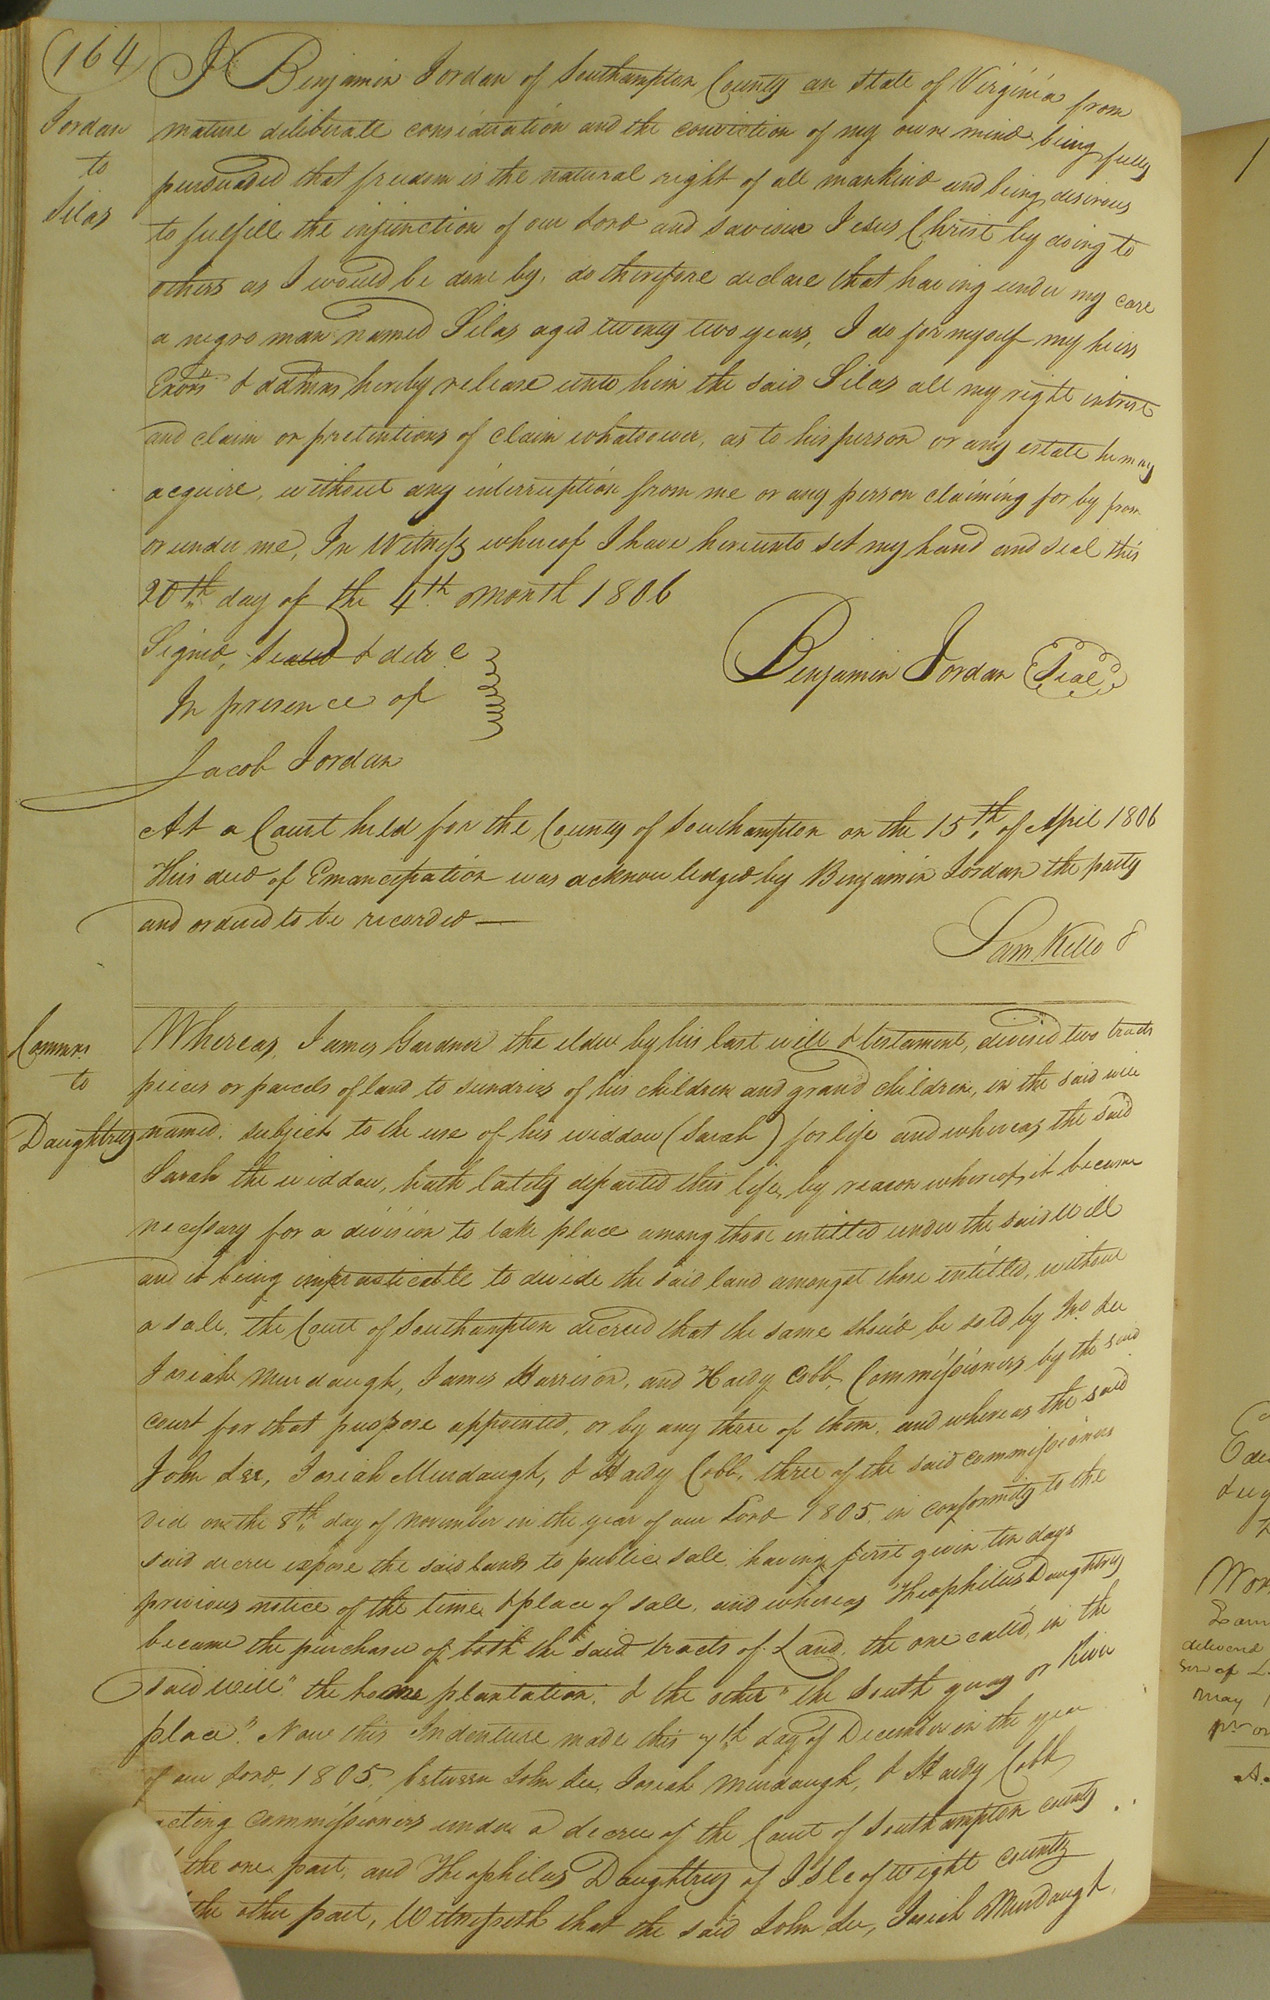 (164)
Jordan
to
Silas
I Benjamin Jordan of Southampton County an State of Virginia from
mature deliberate consideration and the conviction of my own mind being fully
persuaded that freedom is the natural right of all mankind and being desirous
to fulfill the injunction of our Lord and saviour Jesus Christ by doing to
others as I would be done by, do therefore declare that having under my care
a negro man named Silas aged twenty two years, I do for myself my heirs
Exors & admrs hereby release unto him the said Silas all my right intrest
and claim or pretentions of claim whatsoever, as to his person or any estate he may
acquire, without any interruption from me or any person claiming for by from
or under me, In Witness whereof I have hereunto set my hand and seal this
20th day of the 4th month 1806
Signed, Sealed & deld
In presence of
Benjamin Jordan Seal
Jacob Jordan
At a Court held for the County of Southampton on the 15th of April 1806
This deed of Emancipation was acknowledged by Benjamin Jordan the party
and ordered to be recorded —
Sam. Kello
Commrs
to
Daughtrey
Whereas, James Gardner the elder by his last will & testament, divised two tracts
pieces or parcels of land to sundries of his children and grand children, in the said will
named, subject to the use of his widdow (Sarah) for life and whereas the said
Sarah the widdow, hath lately departed this life, by reason whereof, it became
necessary for a division to take place among those entitled under the said Will
and it being impracticable to divide the said land amongst those entitled, without
a sale, the Court of Southampton decreed that the same should be sold by Jno. Lee
Josiah Murdaugh, James Harrison, and Hardy Cobb, Commissioners by the said
court for that purpose appointed, or by any three of them, and whereas the said
John Lee, Josiah Murdaugh, & Hardy Cobb, three of the said commissioners
Did on the 8th day of November in the year of our Lord 1805, in conformity to the
said decree expose the said lands to public sale, having first given ten days
privious notice of the time & place of sale, and whereas Theophilus Daughtrey
became the purchaser of both the said tracts of Land, the one called, in the
said will "the home plantation, & the other "the South quay or River
place". Now this Indenture made this 7th day of December in the year
of our Lord, 1805, between John Lee, Josiah Murdaugh, & Hardy Cobb,
acting commissioners under a decree of the Court of Southampton county
the one part, and Theophilus Daughtrey of Isle of Wight county
the other part, Witnesseth that the said John Lee, Josiah Murdaugh,
delivered
May